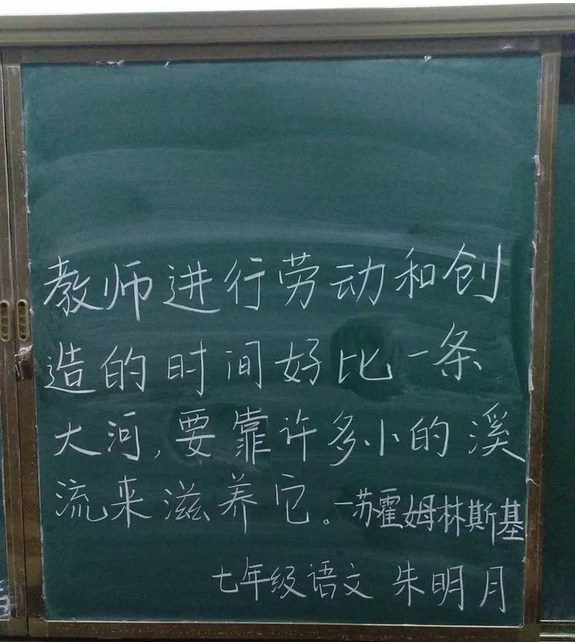 教师进行劳动和创
造的时间好比一条
大河,要靠许多小的溪
流来滋养它。—苏霍姆林斯基
七年级语文 朱明月